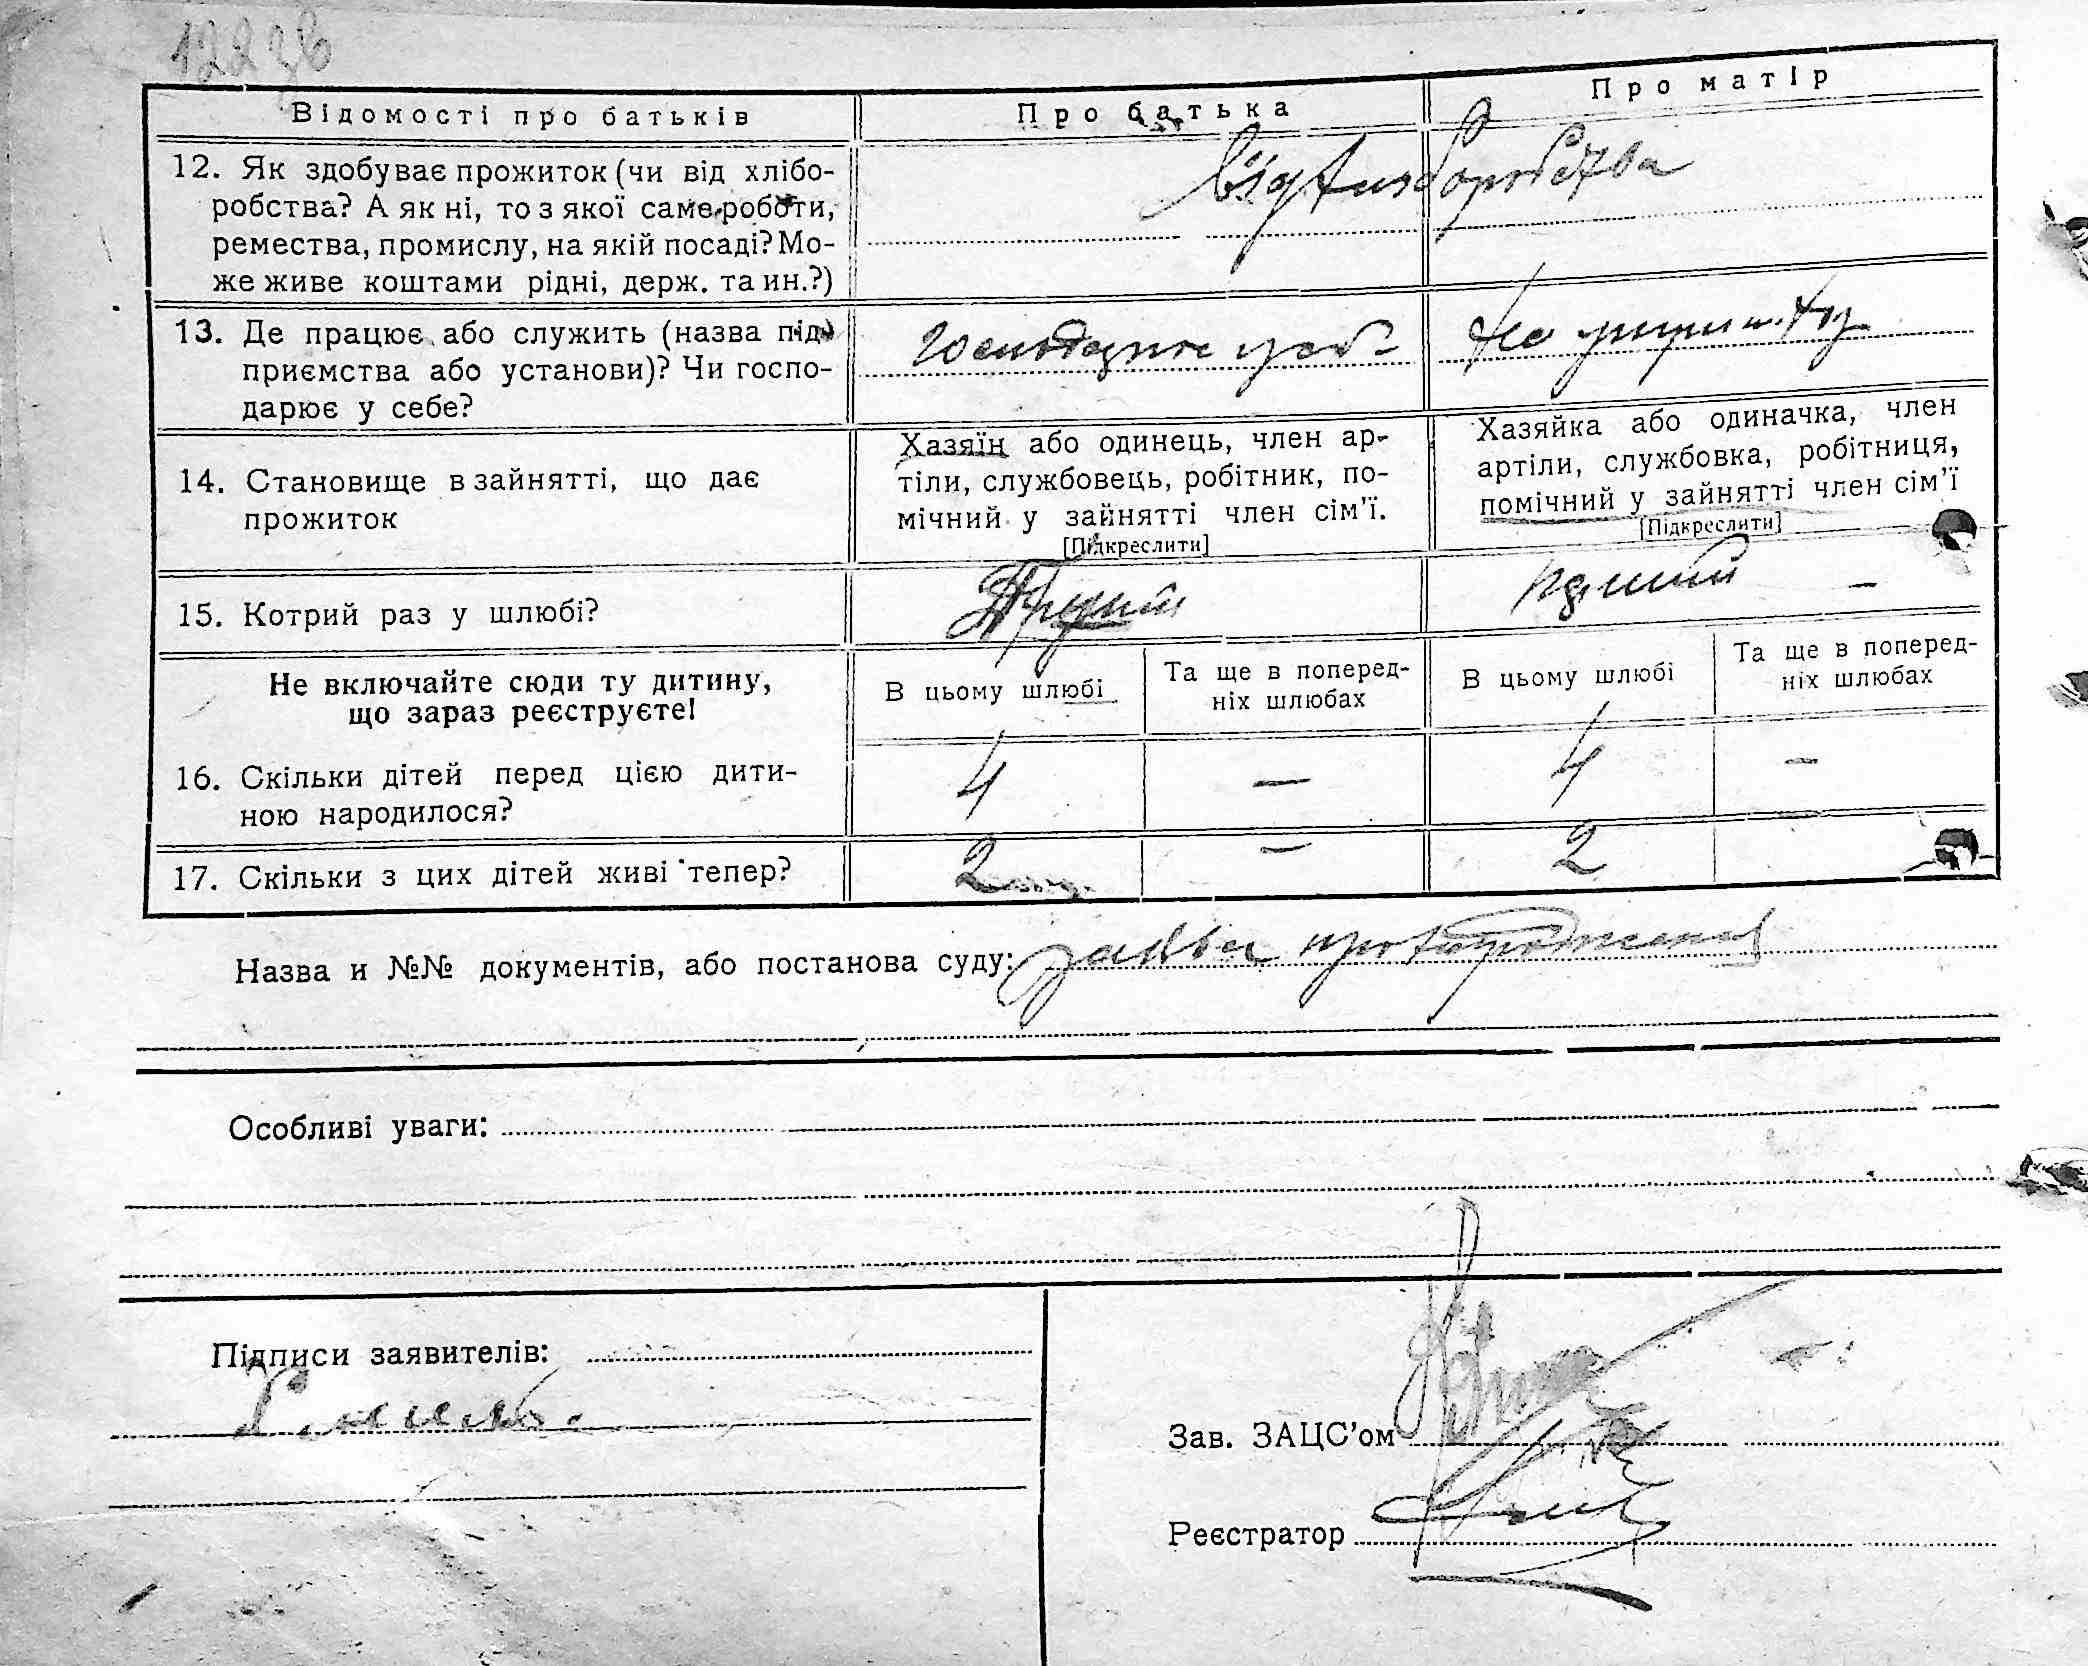 122 зв
Відомості про батьків
Про батька
Про матір
12. Як здобуває прожиток (чи від хлібо-
робства? А як ні, то з якої саме роботи,
ремества, промислу, на якій посаді? Мо-
же живе коштами рідні, держ. та ин.?)
від хліборобства
13. Де працює або служить (назва під-
приємства або установи)? Чи госпо-
дарює у себе?
14. Становище в зайнятті, що дає
прожиток
Хазяїн або одинець, член ар-
тіли, службовець, робітник, по-
мічний у зайнятті член сім'ї.
[Підкреслити]
Хазяйка або одиначка, член
артіли, службовка, робітниця,
помічний у зайнятті член сім'ї
[Підкреслити]
15. Котрий раз у шлюбі?
—
Не включайте сюди ту дитину,
що зараз реєструєте!
В цьому шлюбі
Та ще в поперед-
ніх шлюбах
В цьому шлюбі
Та ще в поперед-
ніх шлюбах
16. Скільки дітей перед цією дити-
ною народилося?
4
—
4
—
17. Скільки з цих дітей живі тепер?
2
—
2
Назва и №№ документів, або постанова суду: заява про народження
Особливі уваги:
Підписи заявителів:
Зав. ЗАЦС'ом
Реєстратор